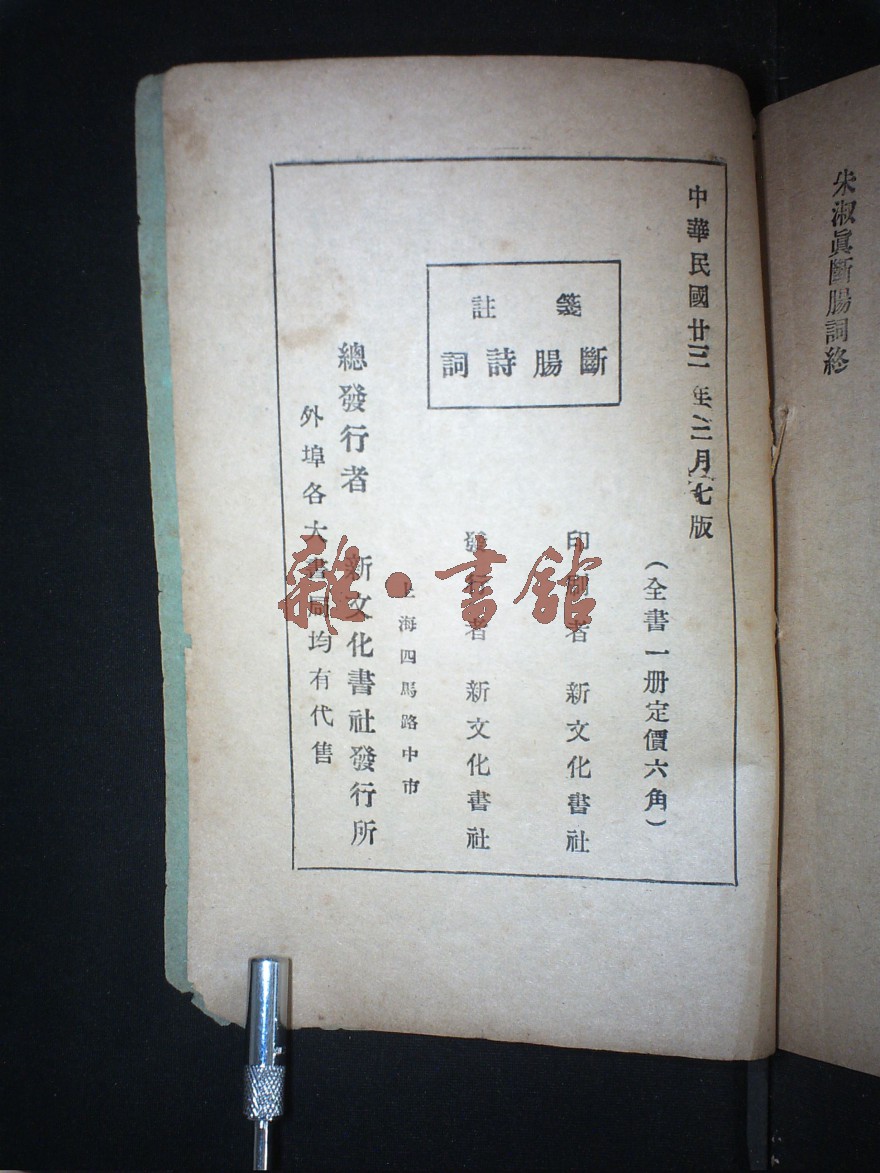 朱淑眞斷腸詞終
中華民國廿三年三月七版
(全書一册定價六角)
箋註
斷腸詩詞
印刷者 新文化書社
發行者 新文化書社
上海四馬路中市
總發行者 新文化書社發行所
外埠各大書局均有代售
雜·書館